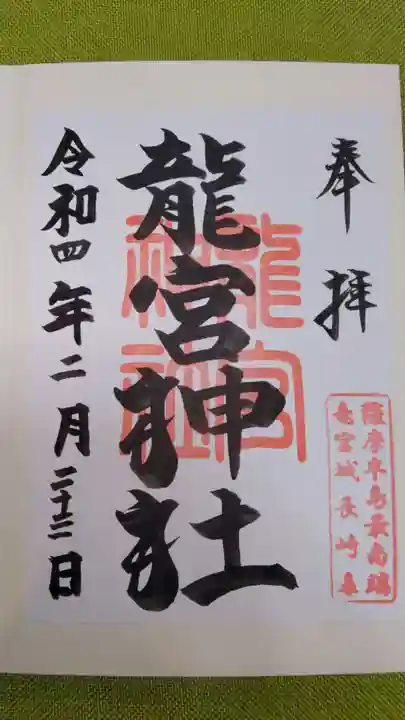 奉拝
薩摩半島最南端
竜宮城長崎鼻
龍宮神社
龍宮
神社
令和四年二月二十二日